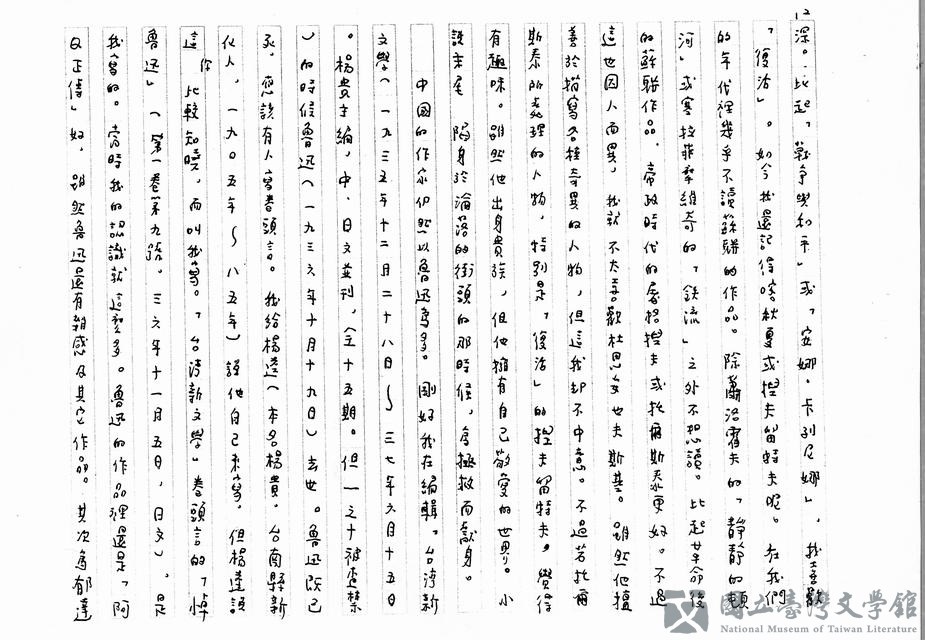 12
深。比起「戰爭與和平」或「安娜·卡列尼娜」,我喜歡
「復活」。如今我還記得喀秋夏或捏夫留特夫呢。在我們
的年代裡幾乎不讀蘇聯的作品。除蕭洛霍夫的「靜靜的頓
河」或塞拉菲摩維奇的「鉄流」之外不想讀。比起革命後
的蘇聯作品,帝政時代的屠格捏夫或托爾斯泰更好。不過
這也因人而異,我就不大喜歡杜思妥也夫斯基。雖然他擅
善於描寫各種奇異的人物,但這我却不中意。不過若托爾
斯泰所處理的人物,特別是「復活」的捏夫留特夫,覺得
有趣味。雖然他出身貴族,但他擁有自己敬愛的世界。小
說末尾 陷身於淪落的街頭的那時候,為拯救而獻身。
中國的作家仍然以魯迅為多。剛好我在編輯「台湾新
文學」(一九三五年十二月二十八日~三七年六月十五日
。楊貴主編,中、日文並刊,全十五期。但一之十被查禁
)的時候魯迅(一九三六年十月十九日)去世。魯迅既已
死,應該有人寫卷頭言。我給楊逵(本名楊貴。台南縣新
化人,一九〇五年~八五年)請他自己來寫,但楊逵說
你
這 比較知曉,而叫我寫。「台湾新文學」卷頭言的「悼
魯迅」(第一卷第九號。三六年十一月五日,日文),是
我寫的。當時我的認識就這麼多。魯迅的作品裡還是「阿
Q正傳」好,雖然魯迅還有雜感及其它作品。其次為郁達
國立臺灣文學館
National Museum of Taiwan Literature